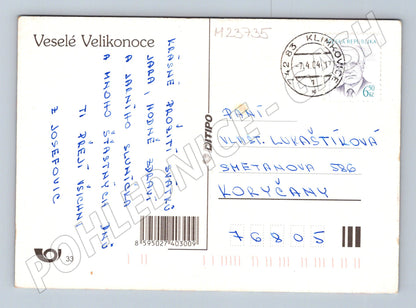 M23735
Veselé Velikonoce
KRÁSNÉ PROŽITÍ SVÁTKŮ
JARA, HODNĚ ZDRAVÍ
A JARNÍHO SLUNÍČKA
A MNOHO ŠŤASTNÝCH DNŮ
TI PŘEJÍ VŠICHNI
Z JOSEFOVIC
© DITIPO
742 83 KLIMKOVICE
-7.4.04-17
REPUBLIKA
6,50
Kč
PANÍ
VLAST. LUVAŠTÍKOVÁ
SMETANOVA 586
KORYČANY
76805
33
8 595027 403009
POHLEDNICE - CASH